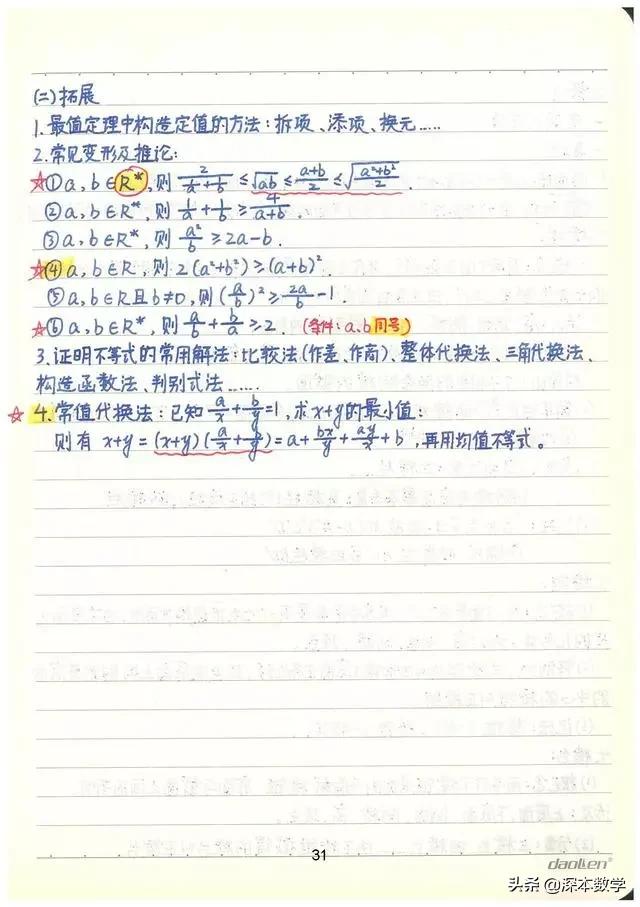 (二)拓展
1. 最值定理中构造定值的方法:拆项、添项、换元……
2. 常见变形及推论:
☆① a,b∈R*,则 2/(1/a+1/b) ≤ √(ab) ≤ (a+b)/2 ≤ √((a²+b²)/2).
② a,b∈R*,则 1/a+1/b ≥ 4/(a+b).
③ a,b∈R*,则 a²/b ≥ 2a-b.
☆④ a,b∈R,则 2(a²+b²) ≥ (a+b)².
⑤ a,b∈R且b≠0,则 (a/b)² ≥ 2a/b -1.
☆⑥ a,b∈R*,则 a/b+b/a ≥ 2. (条件:a,b同号)
3. 证明不等式的常用解法:比较法(作差、作商)、整体代换法、三角代换法、
构造函数法、判别式法……
☆4. 常值代换法:已知 a/x+b/y=1,求x+y的最小值:
则有 x+y=(x+y)(a/x+b/y)=a+bx/y+ay/x+b,再用均值不等式。
31
daolen®
头条@深本数学